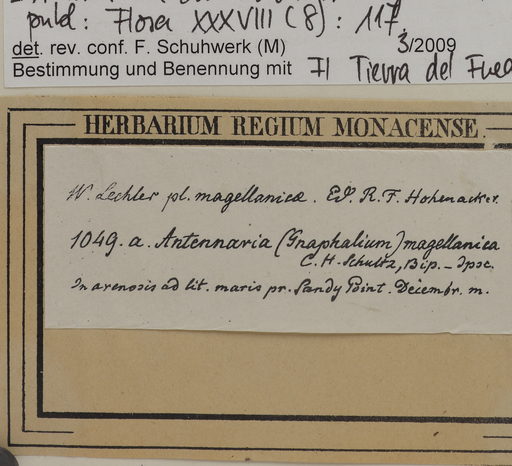 publ: Flora XXXVIII (8): 117.
det. rev. conf. F. Schuhwerk (M) 3/2009
Bestimmung und Benennung mit Fl Tierra del Fueg
HERBARIUM REGIUM MONACENSE.
W. Lechler pl. magellanicæ. Ed. R. F. Hohenacker.
1049. a. Antennaria (Gnaphalium) magellanica
C. H. Schultz, Bip. - Ipse.
In arenosis ad lit. maris pr. Sandy Point. Decembr. m.